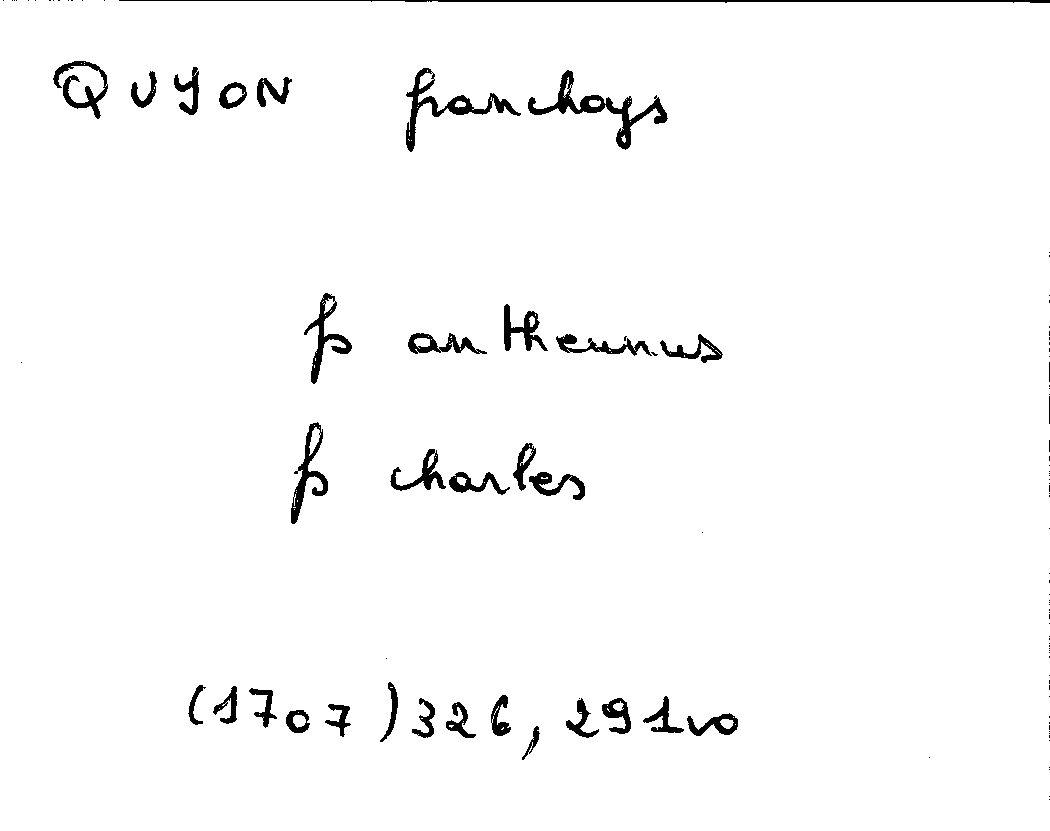 QUYON franchoys
fs antheunus
fs charles
(1707) 326, 291vo